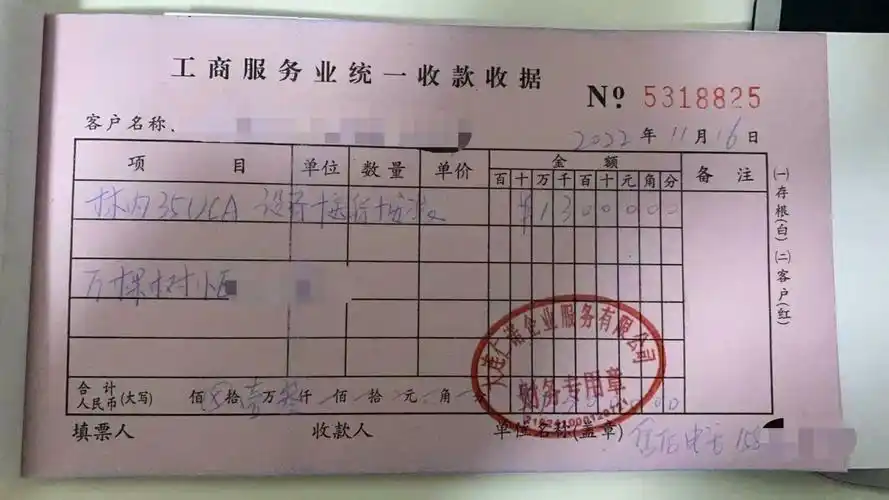 工商服务业统一收款收据
№ 5318825
客户名称.
2022 年 11 月 16 日
项 目 单位 数量 单价 金额 备注
百 十 万 千 百 十 元 角 分
林内35UCA ¥1300000
万棵树小区
合计人民币(大写) 佰 拾 壹万 仟 佰 拾 元 角 分
填票人 收款人 单位名称(盖章)
(一)存根(白)(二)客户(红)
大连仁诺企业服务有限公司
财务专用章